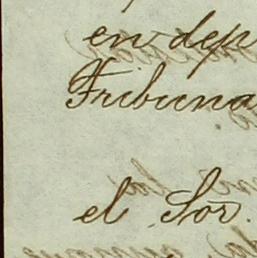 en dep
Tribuna
el Sor.